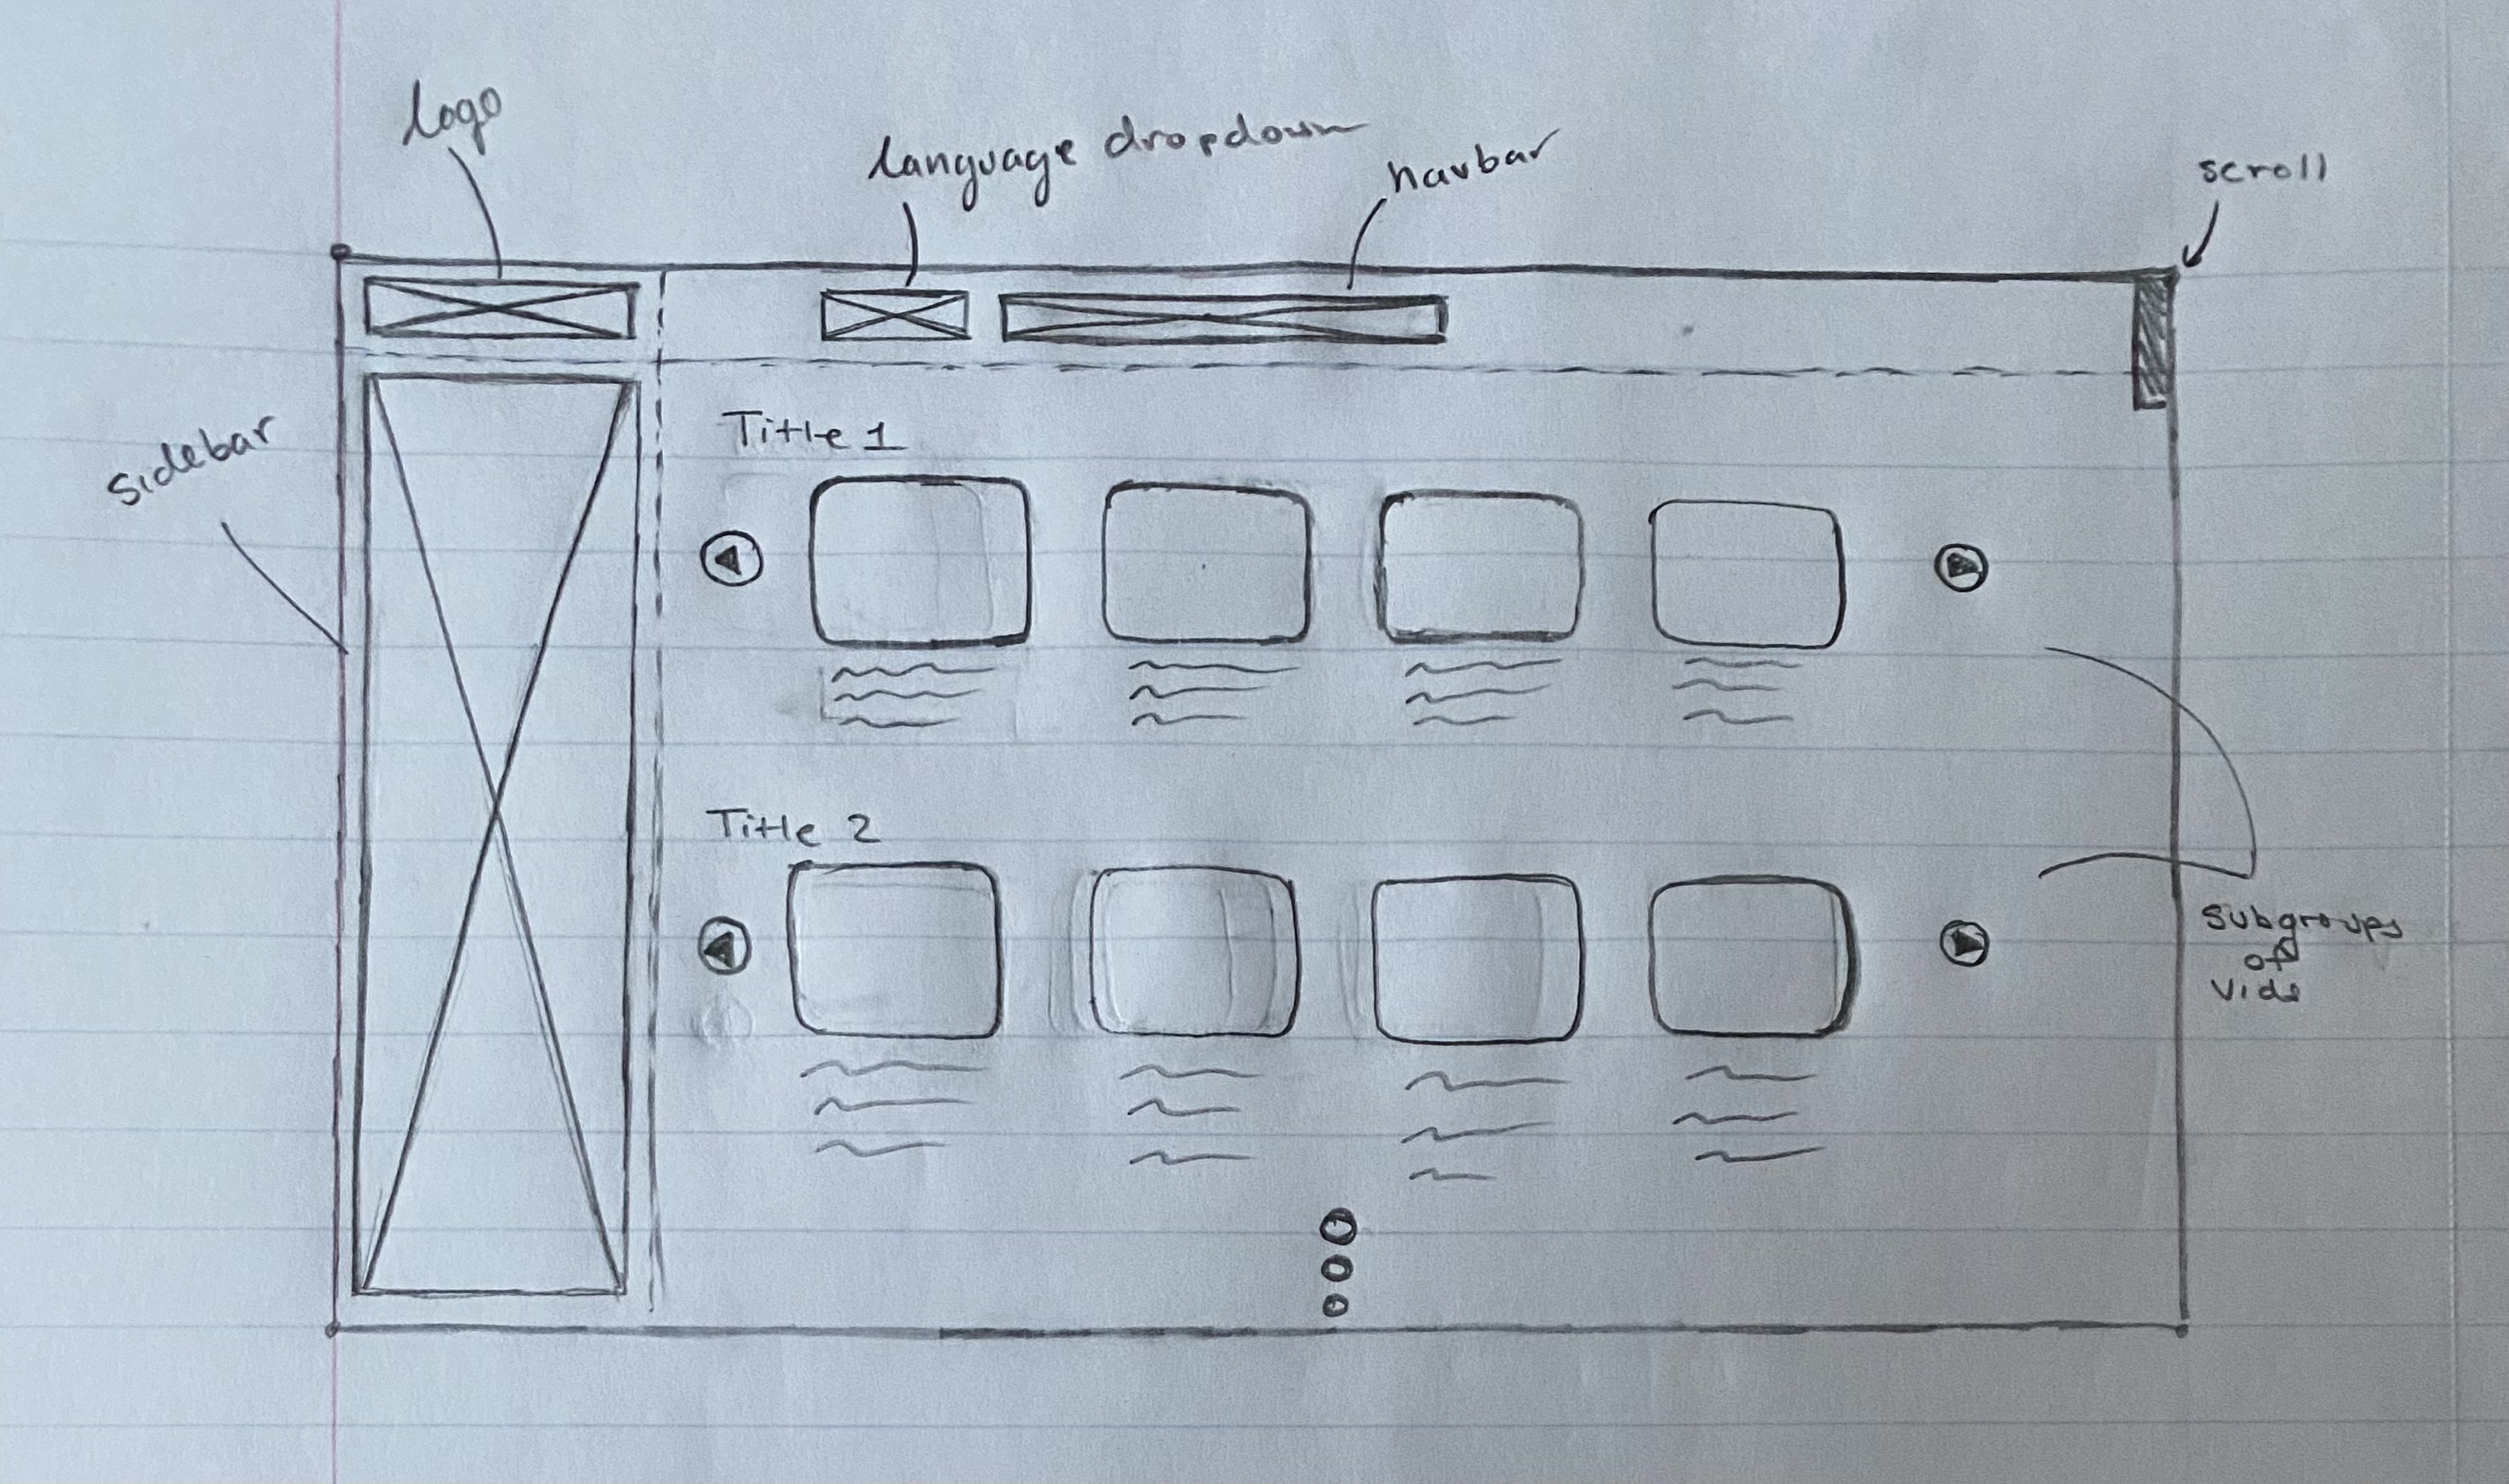 logo
language dropdown
navbar
scroll
sidebar
Title 1
Title 2
subgroups
of
vids